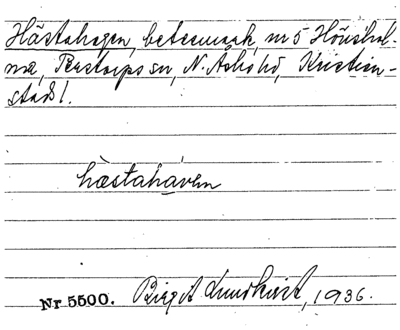 Hästahagen, betesmark, n 5 Hönshol-
ma, Perstorps sn, N. Åsbo hd, Kristian-
stads l.
hæstahaven
Nr 5500. Birgit Lundkvist, 1936.